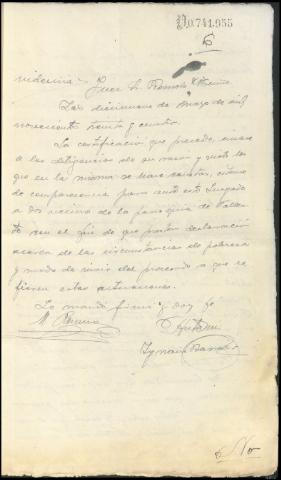 No.741.955
6
Providencia - Juez Sr. Ramos
Las diecinueve de Marzo de mil
novecientos treinta y cuatro.
La certificación que precede, únase
a las diligencias de su razón y visto lo
que en la misma se hace constar, cítense
de comparecencia para ante este Juzgado
a dos vecinos de la parroquia de
con el fin de que presten declaración
acerca de las circunstancias de pobreza
y modo de vivir del procesado a que se
fieren estas actuaciones.
Lo mandó firma y doy fe
M.
Ignacio
No